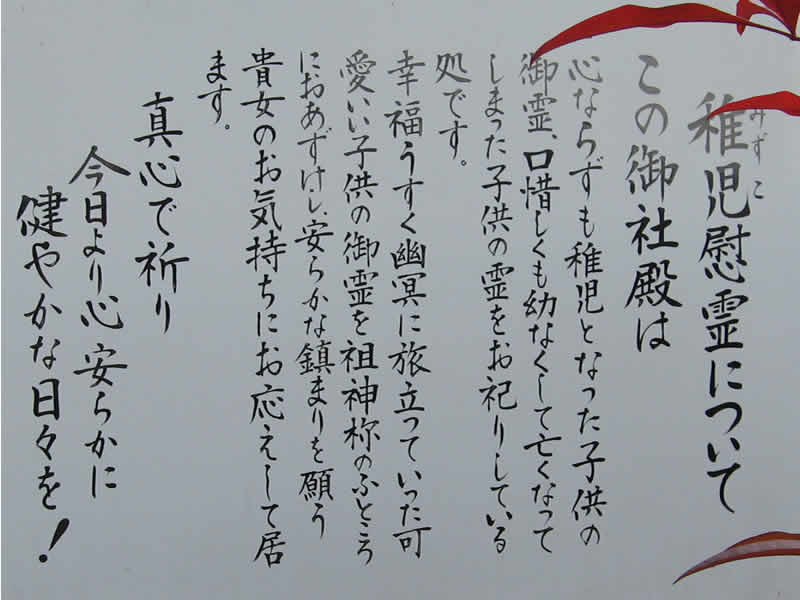 稚児慰霊について
みずこ
この御社殿は
心ならずも稚児となった子供の
御霊、口惜しくも幼なくして亡くなって
しまった子供の霊をお祀りしている
処です。
幸福うすく幽冥に旅立っていった可
愛いい子供の御霊を祖神様のふところ
におあずけし、安らかな鎮まりを願う
貴女のお気持ちにお応えして居
ます。
真心で祈り
今日より心安らかに
健やかな日々を！